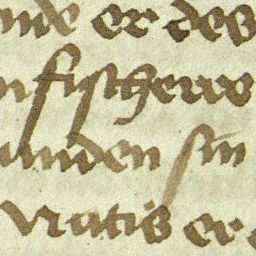 nde er des
n fischerro
unden sin
vratis er